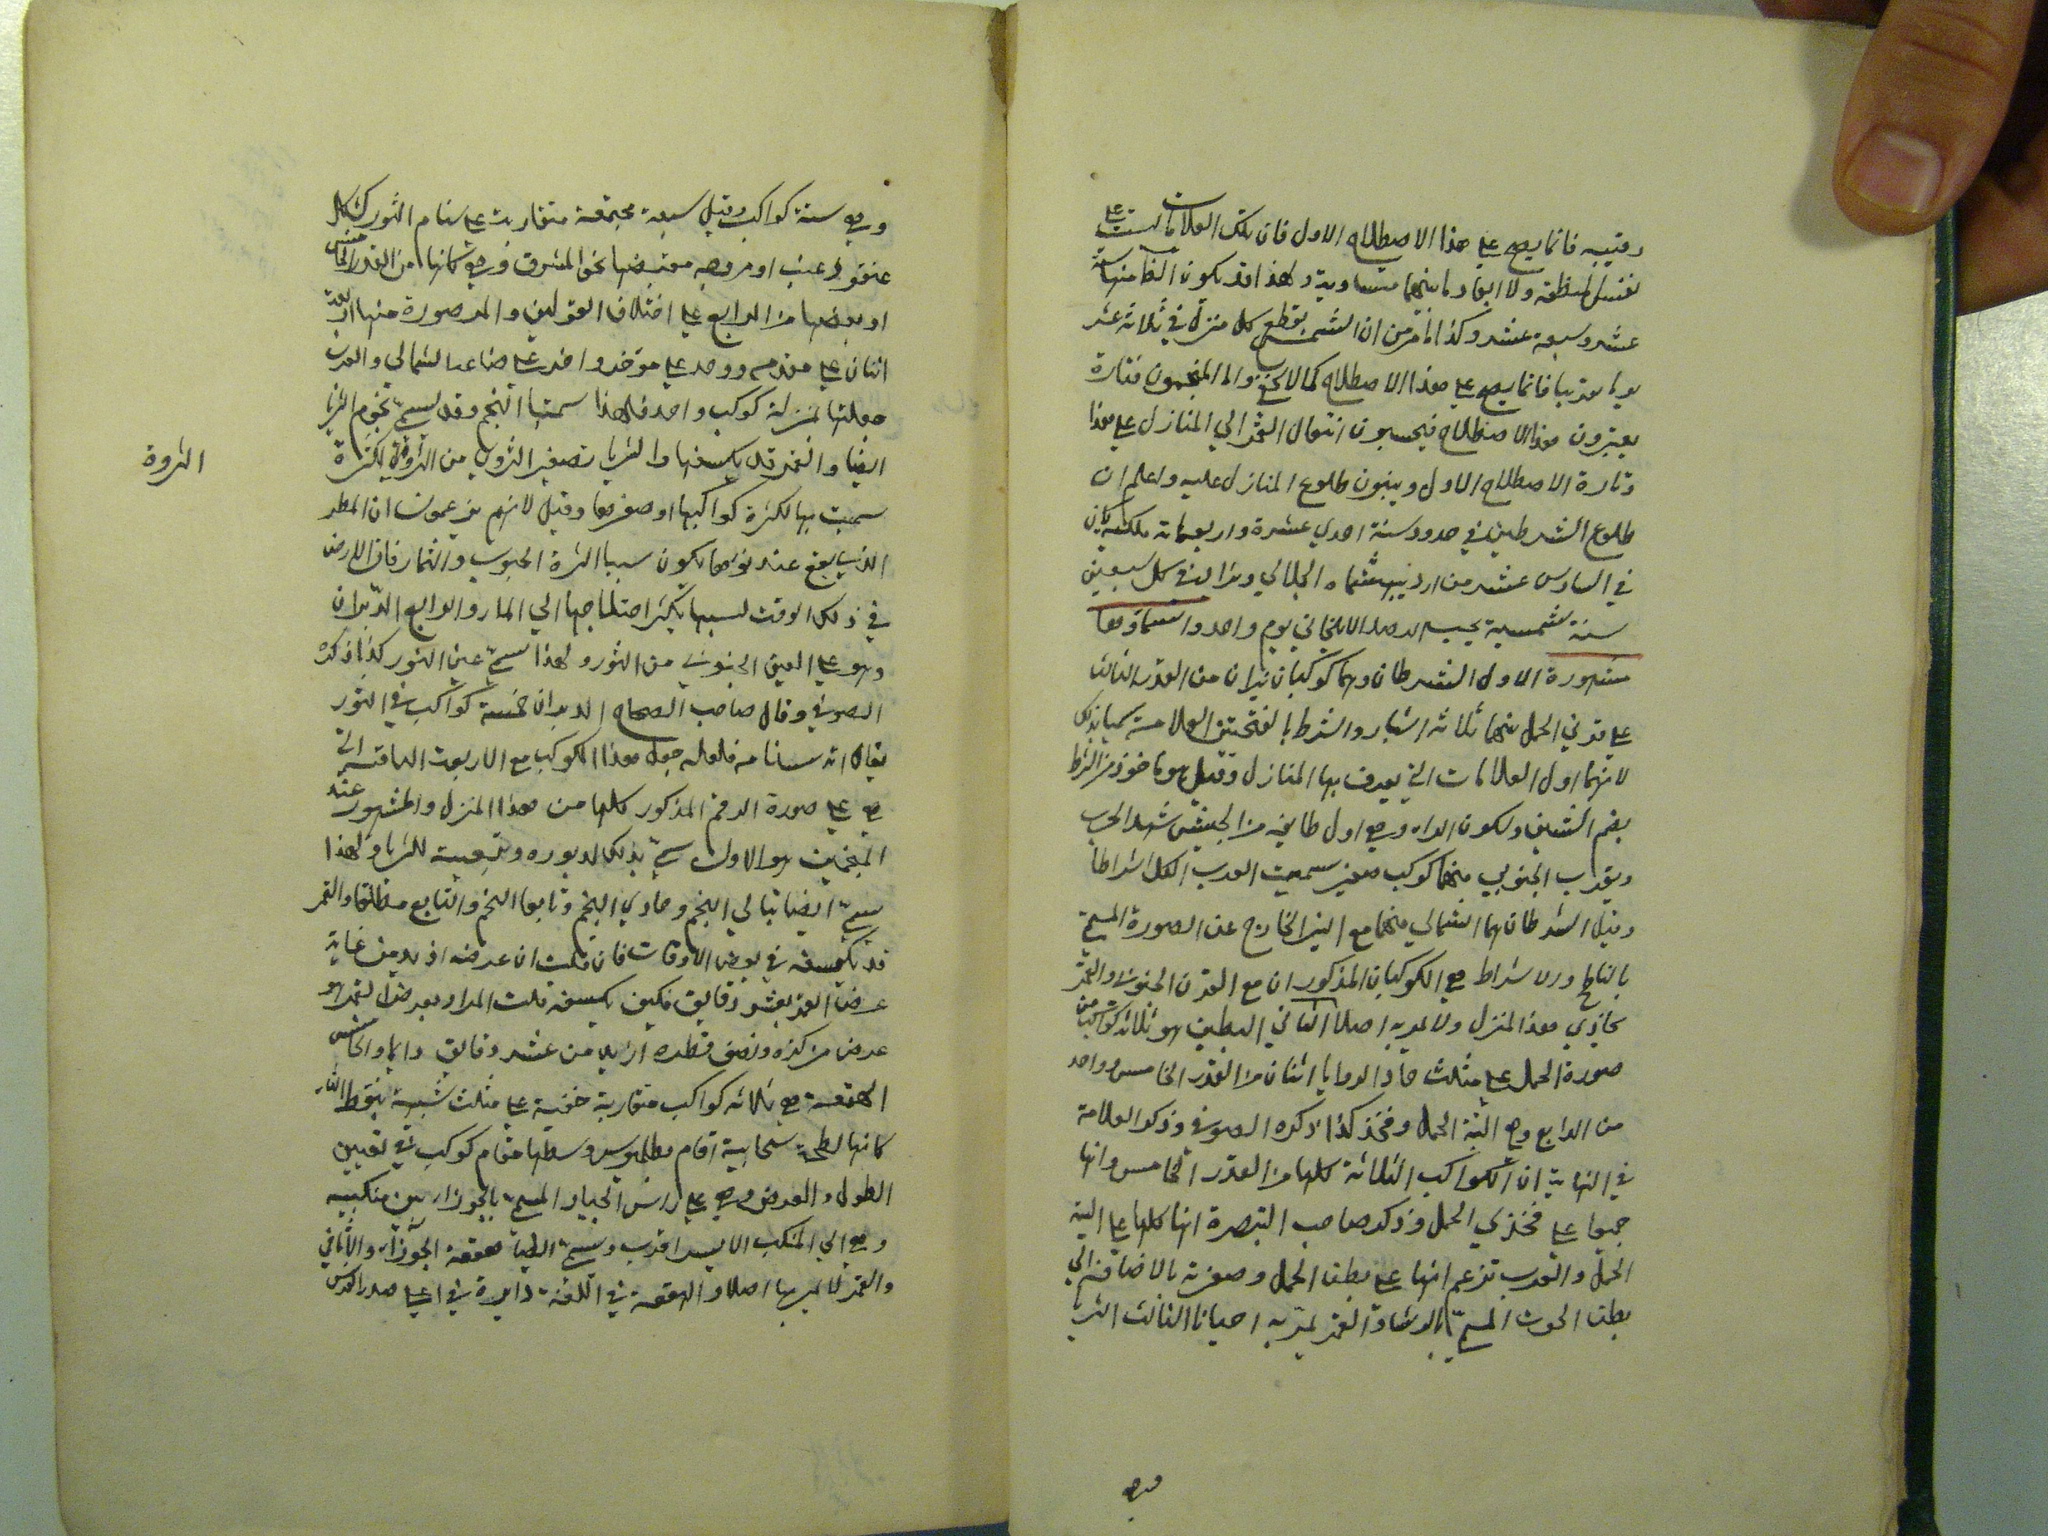 رقيبه فانما يصح على هذا الاصطلاح الاول فان تلك العلامات ليست على
نفس المنطقة ولا ابعاد ما بينها متساوية ولهذا قد يكون الظا منها ستة
عشر وسبعة عشر وكذا ما مر من ان الشمس يقطع كل منزل في ثلاثة عشر
يوما تقريبا فانما يصح على هذا الاصطلاح كما لا يخفى واما المنجمون فتارة
يعتبرون هذا الاصطلاح فيحسبون انتقال القمر الي المنازل على هذا
وتارة الاصطلاح الاول ويبنون طلوع المنازل عليه واعلم ان
طلوع الشرطين في حدود سنة احدي عشرة واربعمائة ملكية كان
في السادس عشر من ارديبهشتماه الجلالي ويزاد في كل سبعين
سنة شمسية بحسب الرصد الايلخاني يوم واحد واسماؤها
مشهورة الاول الشرطان وهما كوكبان نيران من القدر الثالث
على قرني الحمل بينهما ثلاثة اشبار والشرط بالفتحتين العلامة سميا بذلك
لانهما اول العلامات التي يعرف بها المنازل وقيل هو ماخوذ من الشرط
بضم الشين وسكون الراء وهي اول طايفة من الجيش تشهد الحرب
وبقرب الجنوبي منهما كوكب صغير سميت العرب الكل اشراطا
وقيل الشرطان هما الشمالي منهما مع النير الخارج عن الصورة المسمى
بالناطح والاشراط هي الكوكبان المذكوران مع القرن الجنوبي والقمر
يحاذي هذا المنزل ولا يمر به اصلا الثاني البطين هو ثلاثة كواكب من
صورة الحمل على مثلث حاد الزوايا اثنان من القدر الخامس وواحد
من الرابع وهي الية الحمل وفخذه كذا ذكره الصوفي وذكر العلامة
في النهاية ان الكواكب الثلاثة كلها من القدر الخامس وانها
جميعا على فخذي الحمل وذكر صاحب التبصرة انها كلها على الية
الحمل والعرب تزعم انها على بطن الحمل وصغرته بالاضافة الي
بطن الحوت المسمى بالرشاء والقمر يمر به احيانا الثالث الثريا
وهي
وهي ستة كواكب وقيل سبعة مجتمعة متقاربة على سنام الثور كشكل
عنقود عنب او مروحة مقبضها نحو المشرق وهي كانها من القدر الخامس
او بعضها من الرابع على اختلاف القولين والمرصورة منها اربعة
اثنان على مقدمه وواحد على موخره واخر على ضلعه الشمالي والعرب
جعلتها بمنزلة كوكب واحد فلهذا سمتها النجم وقد يسمى نجوم الثريا
ايضا والقمر قد يكسفها والثريا تصغير الثروى من الثروة وهي الكثرة
سميت بها لكثرة كواكبها او صغرها وقيل لانهم يزعمون ان المطر
الذي يقع عند نوئها يكون سببا لكثرة الحبوب والثمار فان الارض
في ذلك الوقت لسببها يكثر احتياجها الي الماء والرابع الدبران
وهو على العين الجنوبي من الثور ولهذا يسمى عين الثور كذا ذكره
الصوفي وقال صاحب الصحاح الدبران خمسة كواكب في الثور
يقال انه سنامه فلعله جعل هذا الكوكب مع الاربعة الباقية التي
هي على صورة الرقم المذكور كلها من هذا المنزل والمشهور عند
المنجمين هو الاول سمي بذلك لدبوره وتبعيته للثريا ولهذا
يسمى ايضا تالي النجم وحادي النجم وتابع النجم والتابع مطلقا والقمر
قد يكسفه في بعض الاوقات فان قلت ان عرضه ازيد من غاية
عرض القمر بعشر دقايق فكيف يكسفه قلت المراد بعرض القمر هو
عرض مركزه ونصف قطره ازيد من عشر دقايق دايما والخامس
الهقعة هي ثلاثة كواكب متقاربة خفية على مثلث شبيه بنقط الثاء
كانها لطخة سحابية اقام بطلميوس وسطها مقام كوكب في تعيين
الطول والعرض وهي على راس الجبار المسمى بالجوزاء بين منكبيه
وهي الي المنكب الايسر اقرب ويسمى ايضا هقعة الجوزاء والاثافي
والقمر لا يمر بها اصلا والهقعة في اللغة دايرة في اعلى صدر الفرس
الثروة